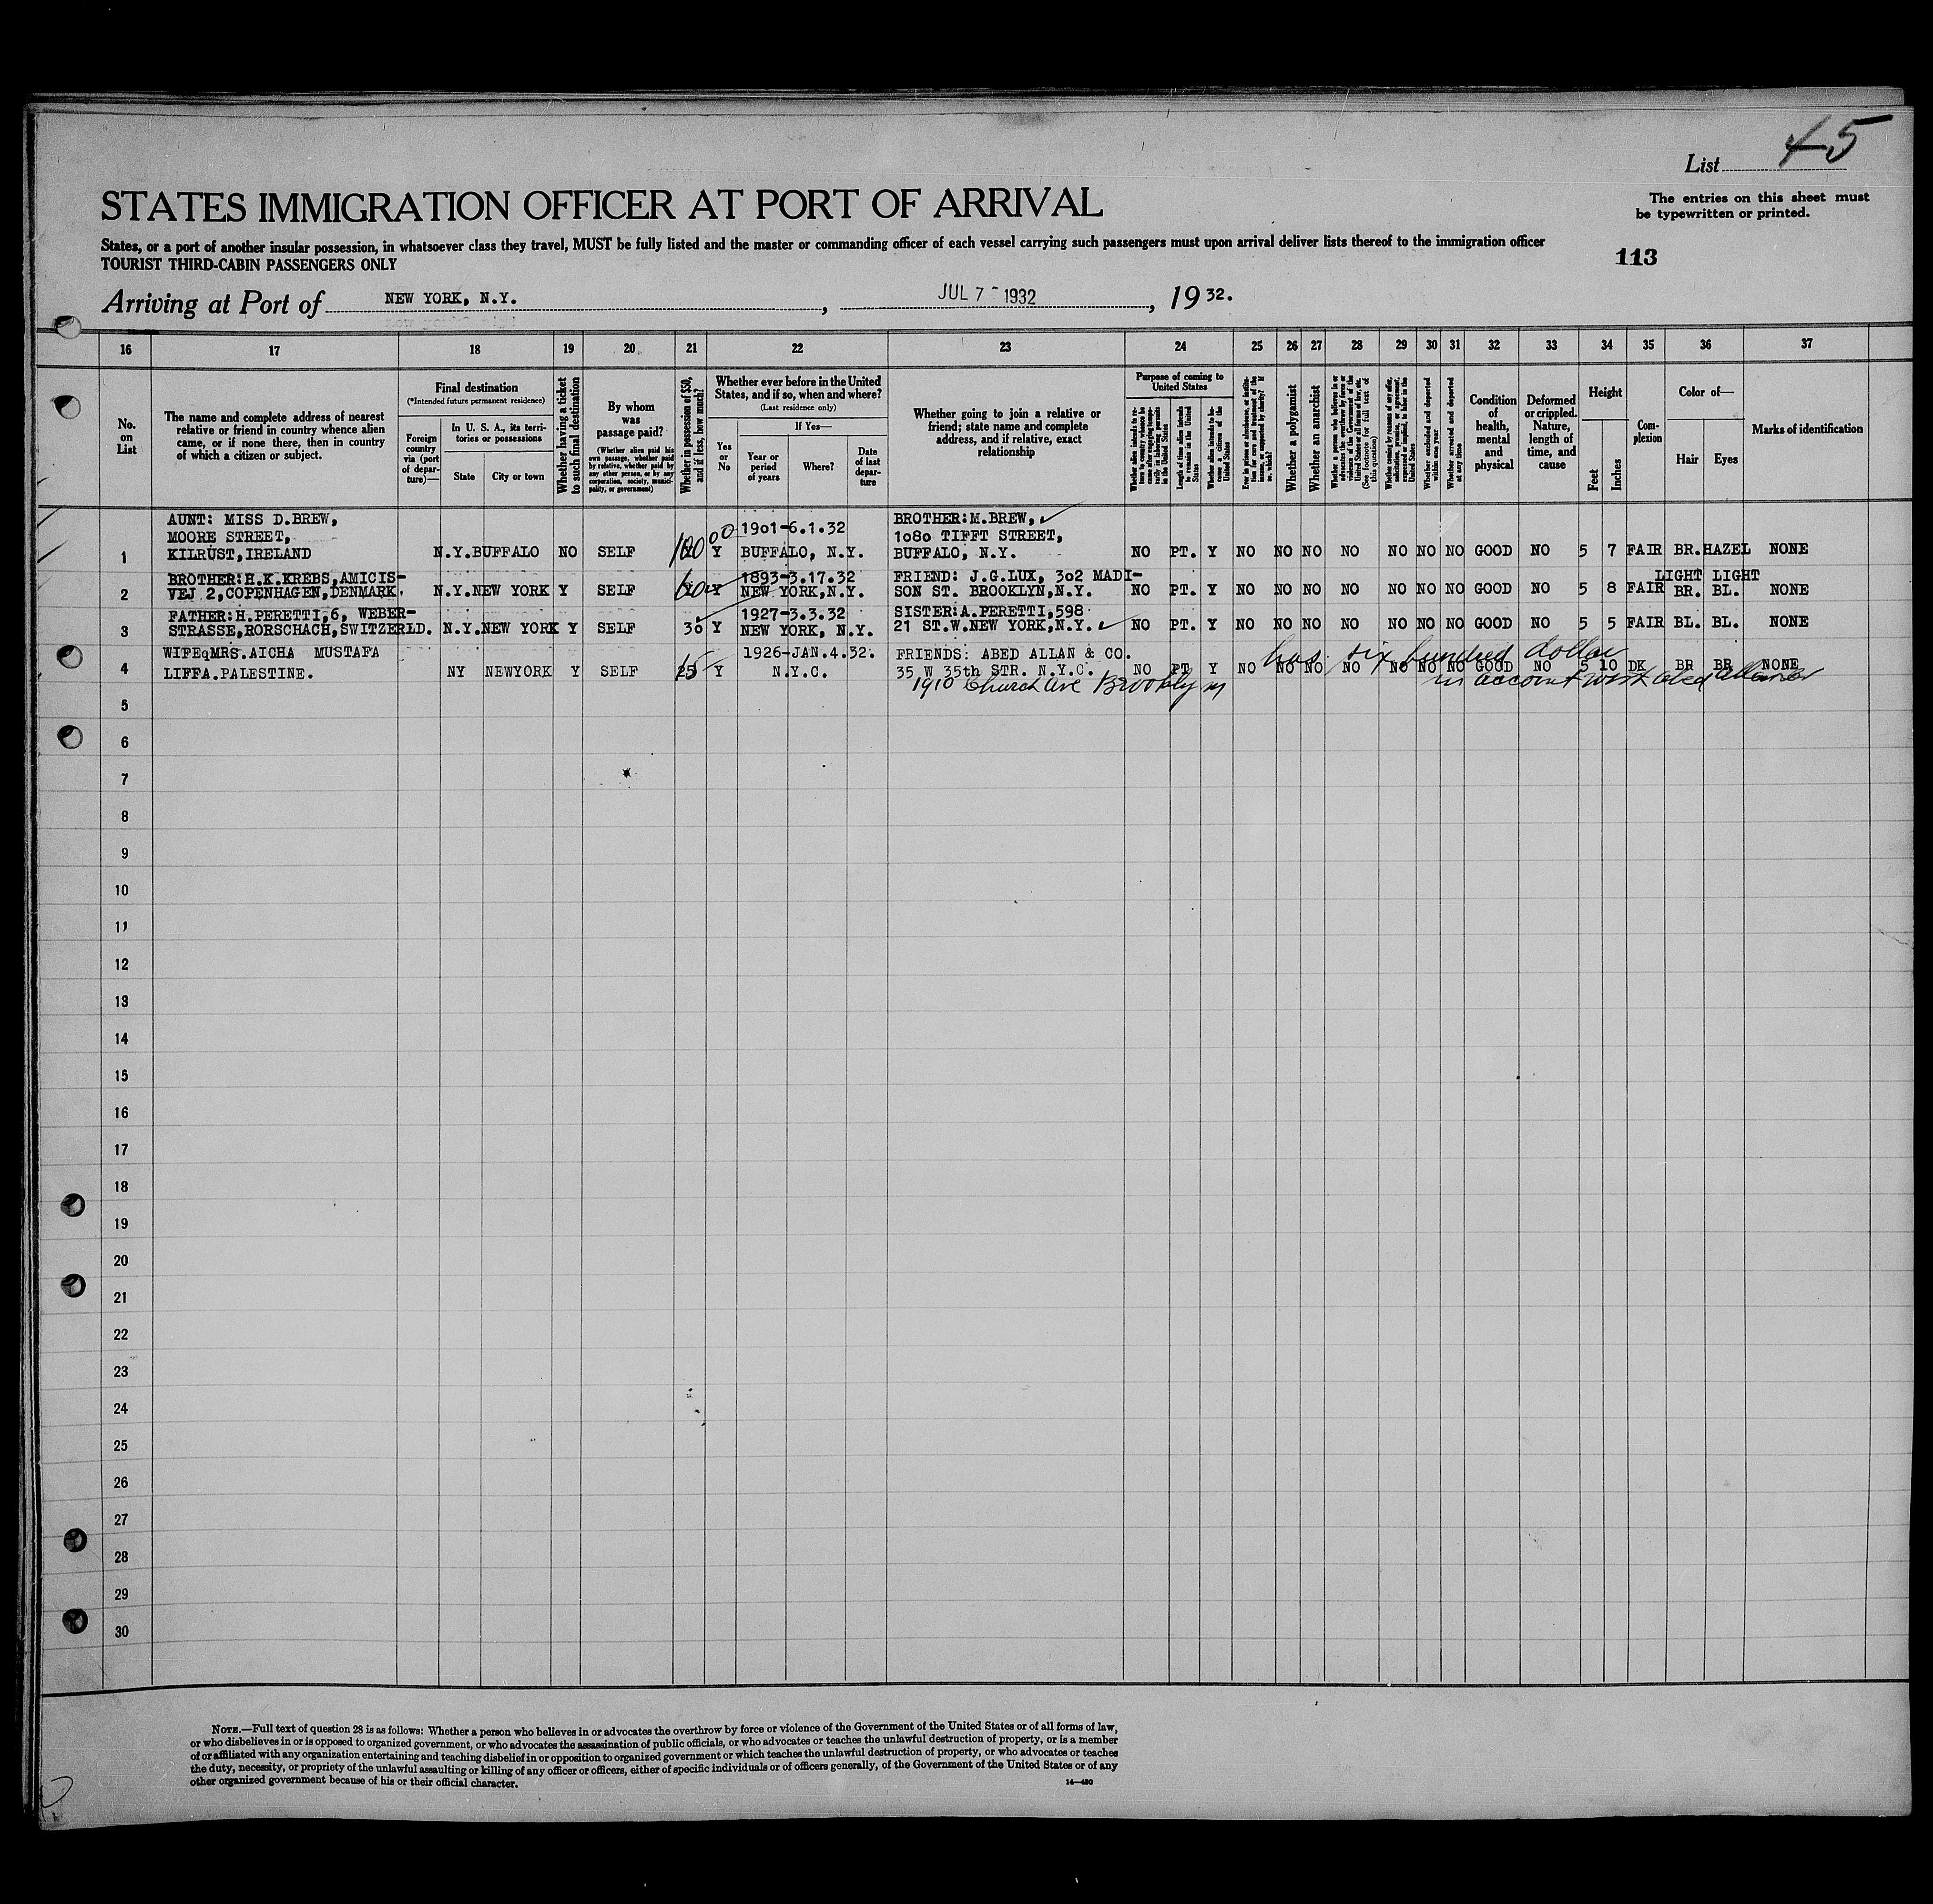 List 45
STATES IMMIGRATION OFFICER AT PORT OF ARRIVAL
The entries on this sheet must
be typewritten or printed.
States, or a port of another insular possession, in whatsoever class they travel, MUST be fully listed and the master or commanding officer of each vessel carrying such passengers must upon arrival deliver lists thereof to the immigration officer
TOURIST THIRD-CABIN PASSENGERS ONLY
113
Arriving at Port of NEW YORK, N.Y., JUL 7 - 1932, 19 32.
16 17 18 19 20 21 22 23 24 25 26 27 28 29 30 31 32 33 34 35 36 37
No. on List
The name and complete address of nearest
relative or friend in country whence alien
came, or if none there, then in country
of which a citizen or subject.
Final destination
(*Intended future permanent residence)
Foreign country via (port of departure)—
In U. S. A., its territories or possessions
State City or town
Whether having a ticket to such final destination
By whom was passage paid?
(Whether alien paid his own passage, whether paid by relative, whether paid by any other person, or by any corporation, society, municipality, or government)
Whether in possession of $50, and if less, how much?
Whether ever before in the United
States, and if so, when and where?
(Last residence only)
Yes or No
If Yes—
Year or period of years
Where?
Date of last departure
Whether going to join a relative or
friend; state name and complete
address, and if relative, exact
relationship
Purpose of coming to United States
Length of time alien intends to remain in the United States
Whether alien intends to become a citizen of the United States
Whether a polygamist
Whether an anarchist
(See footnote for full text of this question)
Whether excluded and deported within one year
Whether arrested and deported at any time
Condition of health, mental and physical
Deformed or crippled. Nature, length of time, and cause
Height
Feet Inches
Complexion
Color of—
Hair Eyes
Marks of identification
AUNT: MISS D.BREW, 1901-6.1.32 BROTHER:M.BREW,
MOORE STREET, 1080 TIFFT STREET,
1 KILRUST,IRELAND N.Y.BUFFALO NO SELF Y BUFFALO, N.Y. BUFFALO, N.Y. NO PT. Y NO NO NO NO NO NO NO GOOD NO 5 7 FAIR BR.HAZEL NONE
BROTHER:H.K.KREBS,AMICIS- 1893-3.17.32 FRIEND: J.G.LUX, 302 MADI- LIGHT LIGHT
2 VEJ 2,COPENHAGEN,DENMARK. N.Y.NEW YORK Y SELF Y NEW YORK,N.Y. SON ST. BROOKLYN,N.Y. NO PT. Y NO NO NO NO NO NO NO GOOD NO 5 8 FAIR BR. BL. NONE
FATHER:H.PERETTI,6, WEBER- 1927-3.3.32 SISTER:A.PERETTI,598
3 STRASSE,RORSCHACH,SWITZERLD. N.Y.NEW YORK Y SELF 30 Y NEW YORK, N.Y. 21 ST.W.NEW YORK,N.Y. NO PT. Y NO NO NO NO NO NO NO GOOD NO 5 5 FAIR BL. BL. NONE
WIFEqMRS.AICHA MUSTAFA 1926-JAN.4.32. FRIENDS: ABED ALLAN & CO. has six hundred dollar
4 LIFFA.PALESTINE. NY NEWYORK Y SELF Y N.Y.C. 35 W 35th STR. N.Y.C. NO PT Y NO NO NO NO NO NO NO GOOD NO 5 10 DK BR BR NONE
1910 Church ave Brooklyn in account with abed
5
6
7
8
9
10
11
12
13
14
15
16
17
18
19
20
21
22
23
24
25
26
27
28
29
30
NOTE.—Full text of question 28 is as follows: Whether a person who believes in or advocates the overthrow by force or violence of the Government of the United States or of all forms of law,
or who disbelieves in or is opposed to organized government, or who advocates the assassination of public officials, or who advocates or teaches the unlawful destruction of property, or is a member
of or affiliated with any organization entertaining and teaching disbelief in or opposition to organized government or which teaches the unlawful destruction of property, or who advocates or teaches
the duty, necessity, or propriety of the unlawful assaulting or killing of any officer or officers, either of specific individuals or of officers generally, of the Government of the United States or of any
other organized government because of his or their official character.
14—430